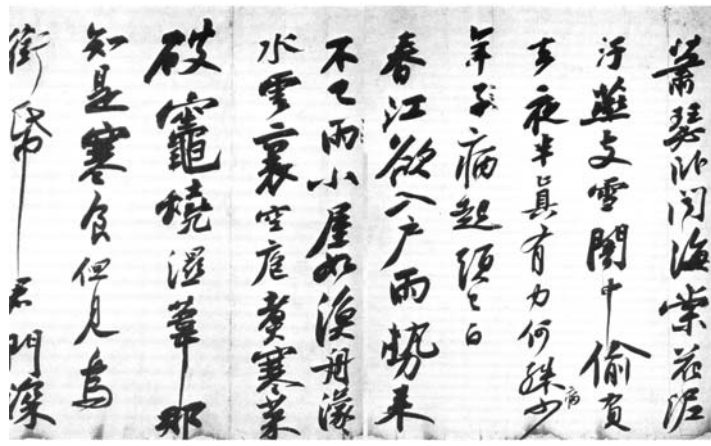 蕭瑟卧聞海棠花泥
汙燕支雪闇中偷負
去夜半真有力何殊病少
年子病起頭已白
春江欲入戶雨勢來
不已雨小屋如漁舟濛
水雲裏空庖煮寒菜
破竈燒濕葦那
知是寒食但見烏
銜帋君門深